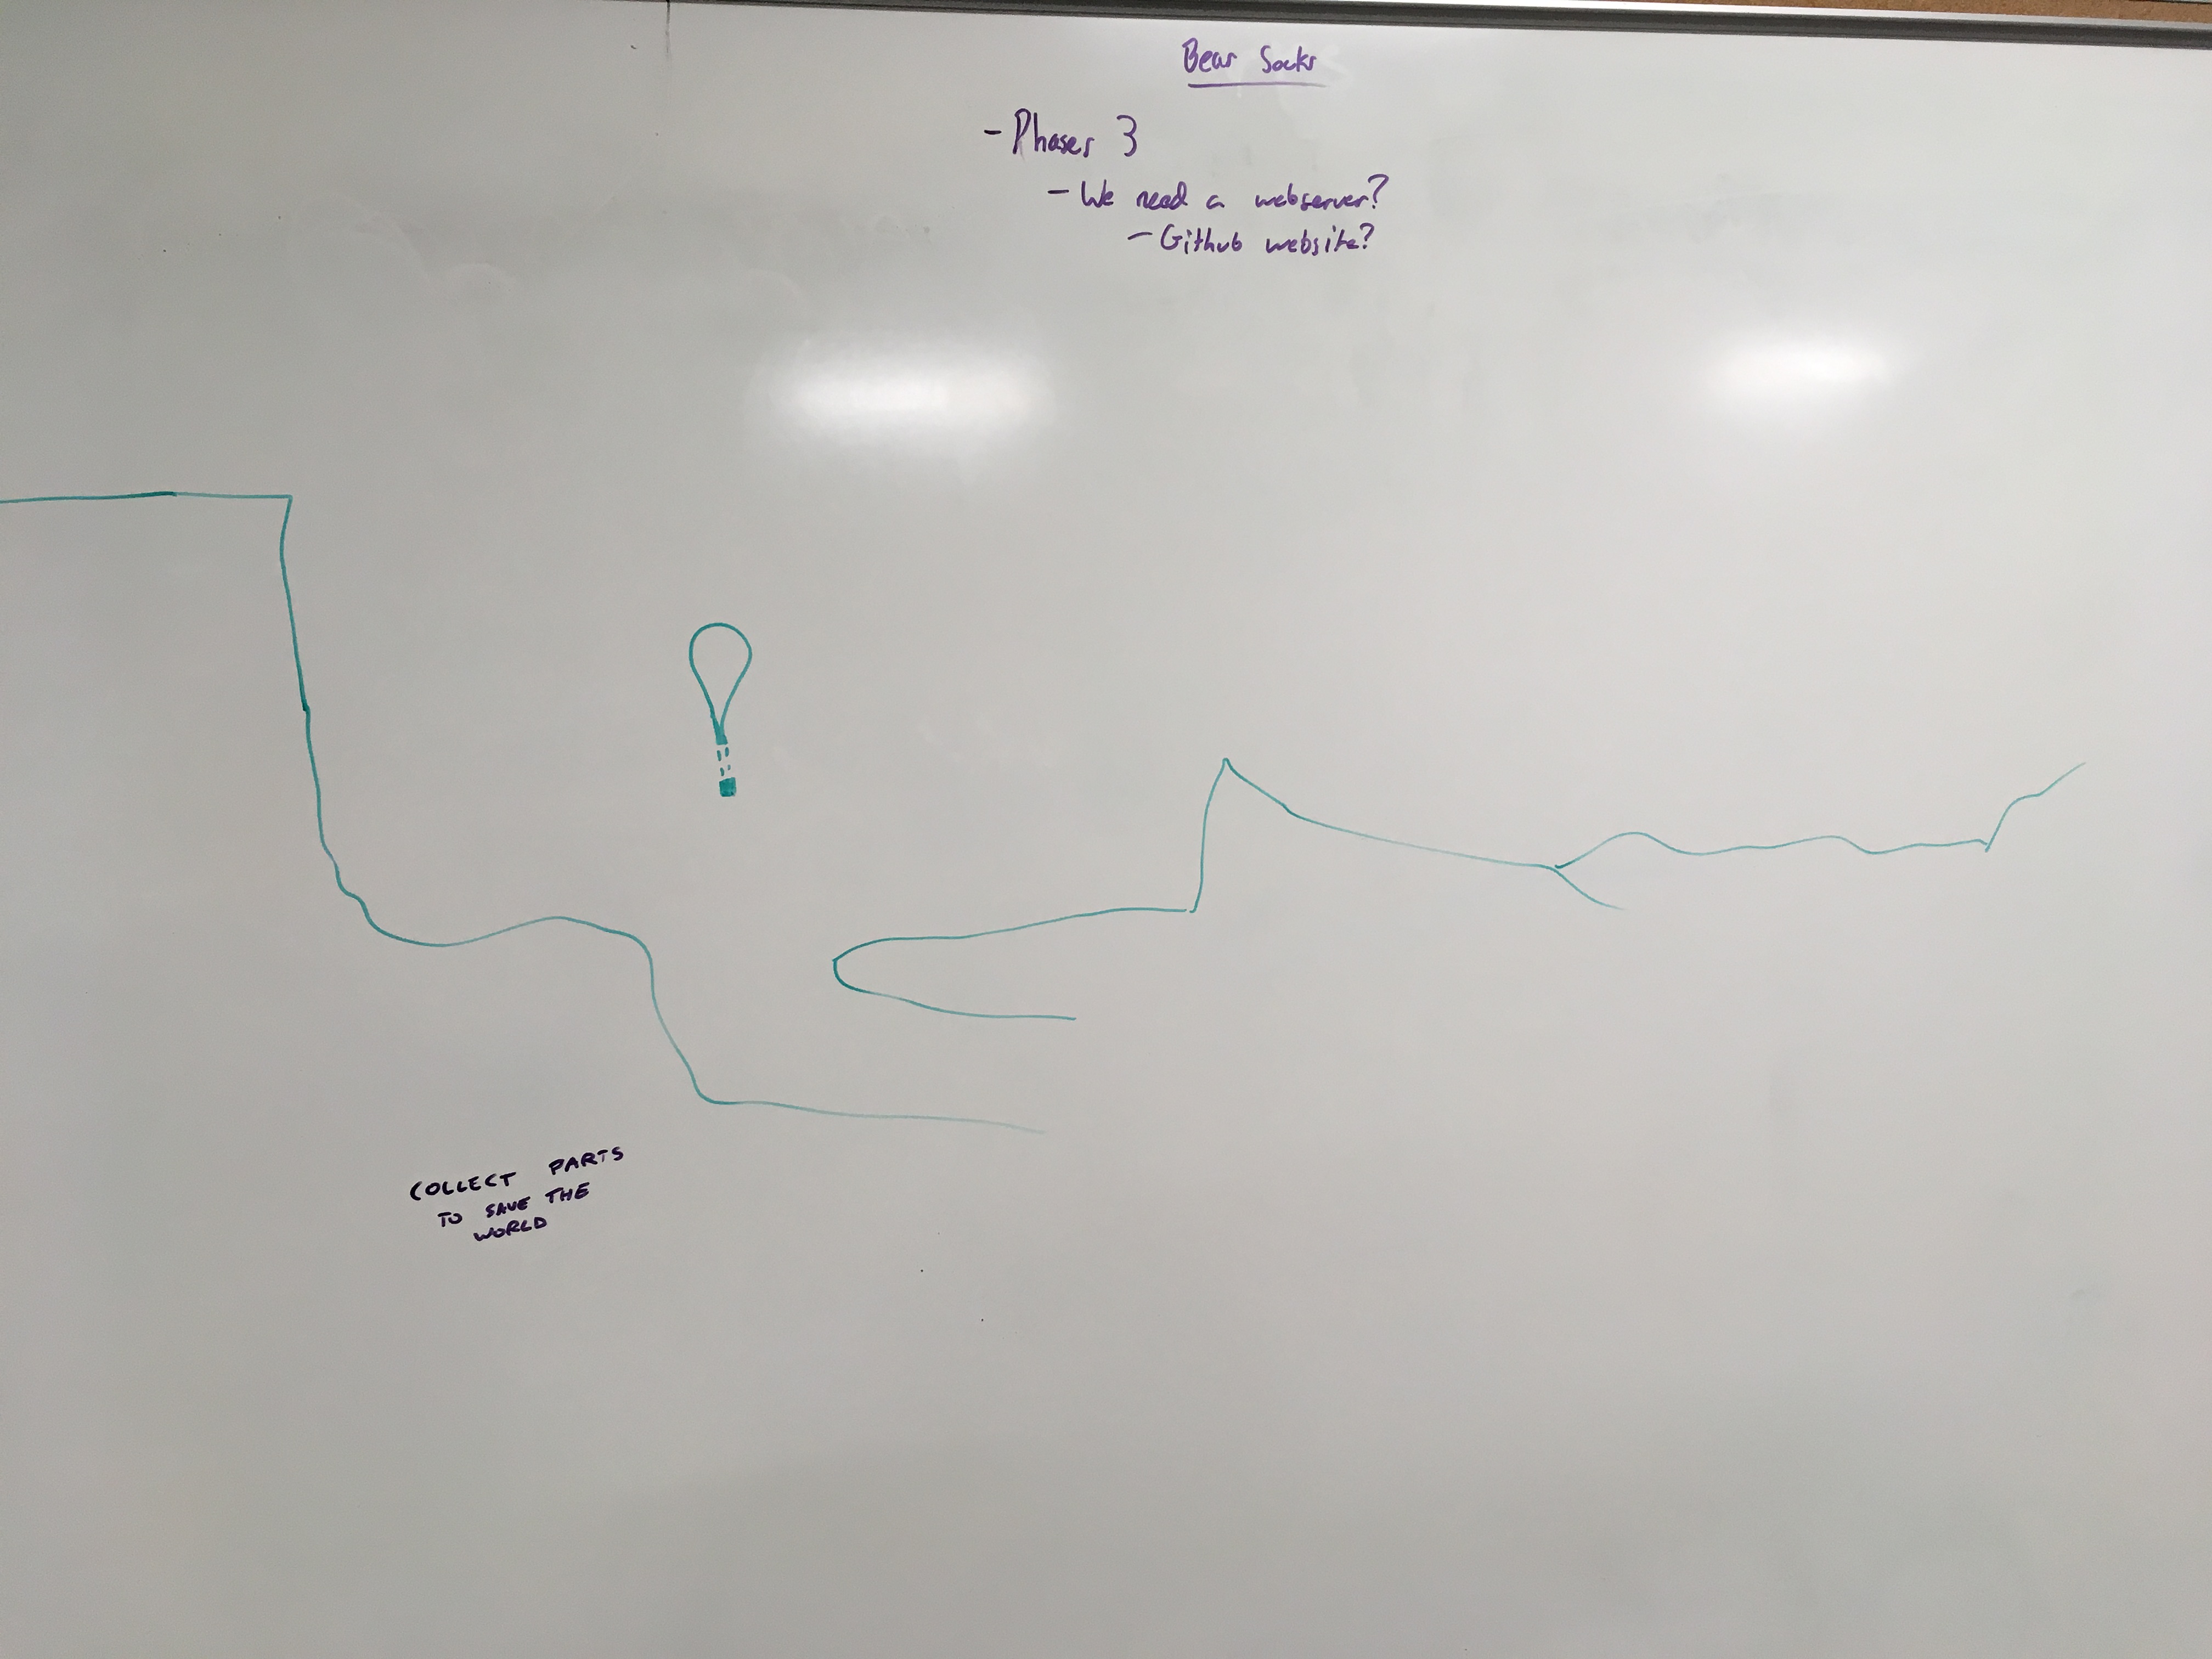 Bear Socks
- Phaser 3
- We need a webserver?
- Github website?
COLLECT PARTS
TO SAVE THE
WORLD